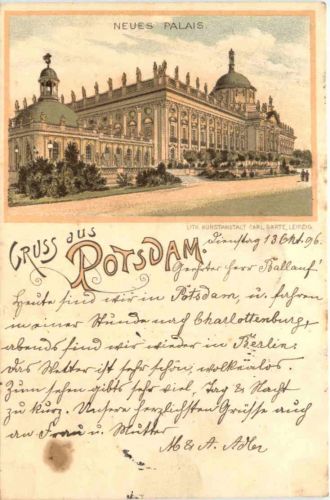 NEUES PALAIS.
LITH. KUNSTANSTALT CARL GARTE, LEIPZIG.
GRUSS aus POTSDAM.
Dienstag 13 Okt. 96.
Geehrter Herr Ballauf
Heute sind wir in Potsdam, u. fahren
in einer Stunde nach Charlottenburg,
abends sind wir wieder in Berlin.
Das Wetter ist sehr schön, wolkenlos.
Zum sehen gibts sehr viel, Tag & Nacht
zu kurz. Unsere herzlichsten Grüsse auch
an Frau u. Mutter
M & A. Adler